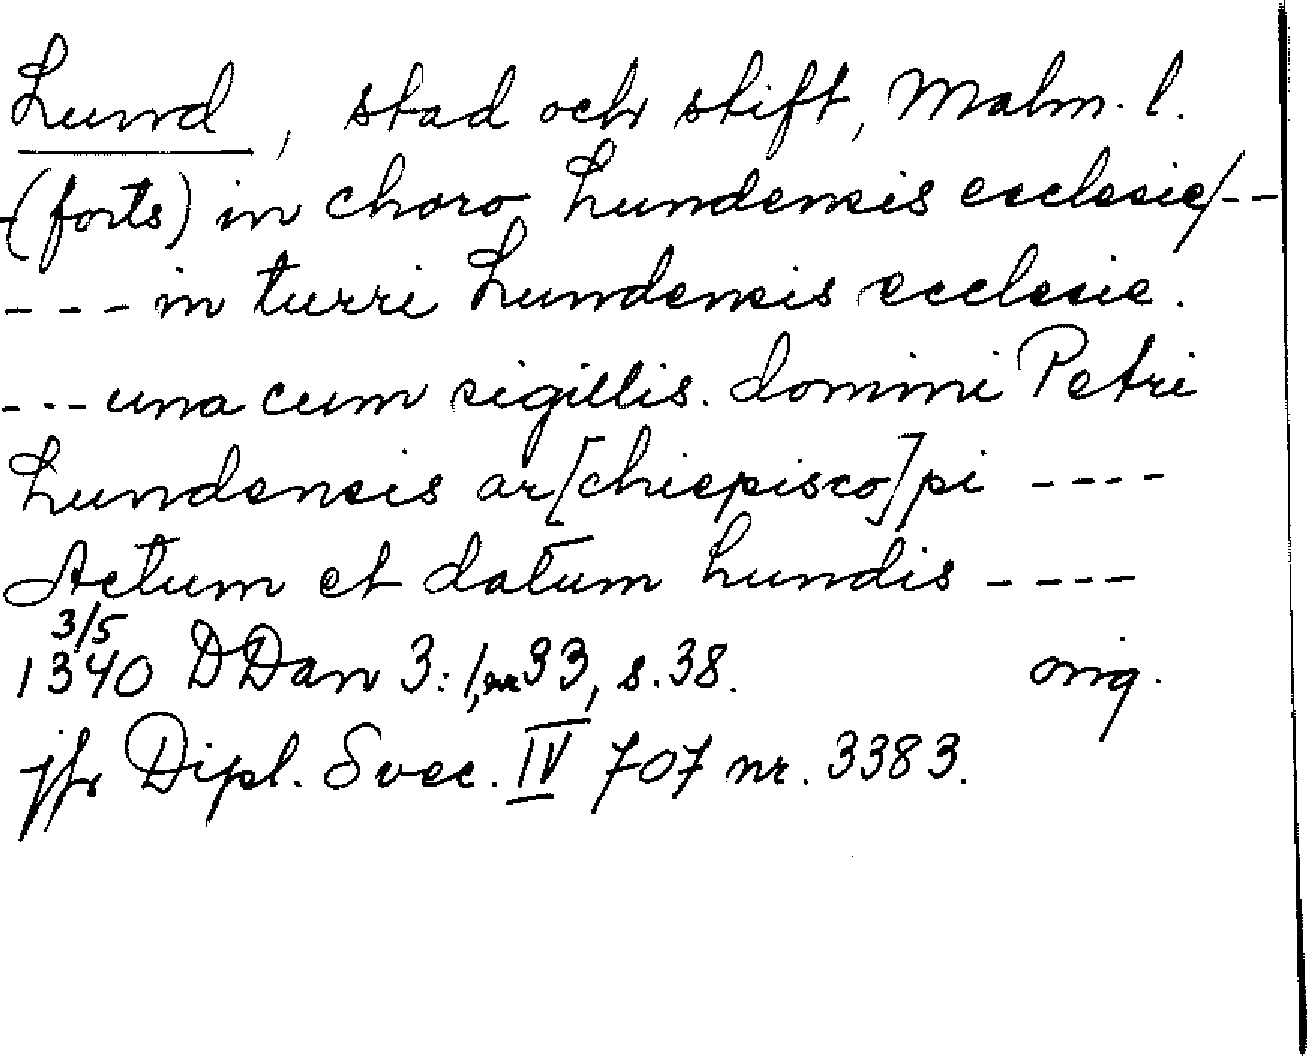 Lund, stad och stift, Malm. l.
(forts) in choro Lundensis ecclesie/--
--- in turri Lundensis ecclesie.
--- una cum sigillis. domini Petri
Lundensis ar[chiepisco]pi ----
Actum et datum Lundis ----
3/5
1340 DDan 3:1, nr 33, s. 38. orig.
jfr Dipl. Svec. IV 707 nr. 3383.